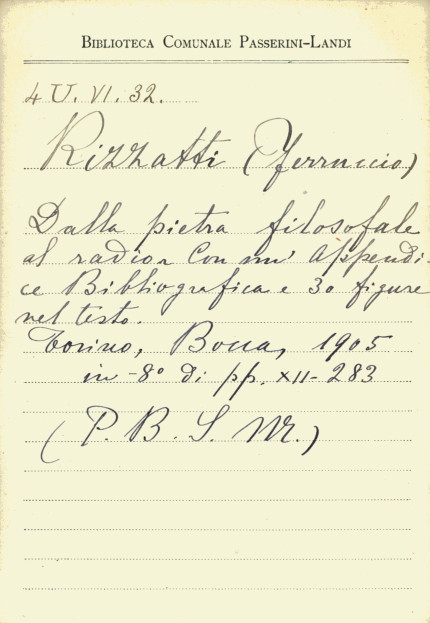 BIBLIOTECA COMUNALE PASSERINI-LANDI
4 U. VI. 32.
Rizzatti (Ferruccio)
Dalla pietra filosofale
al radio. Con un' Appendi-
ce Bibliografica e 30 figure
nel testo.
Torino, Bocca, 1905
in-8° di pp. XII-283
(P. B. S. M.)